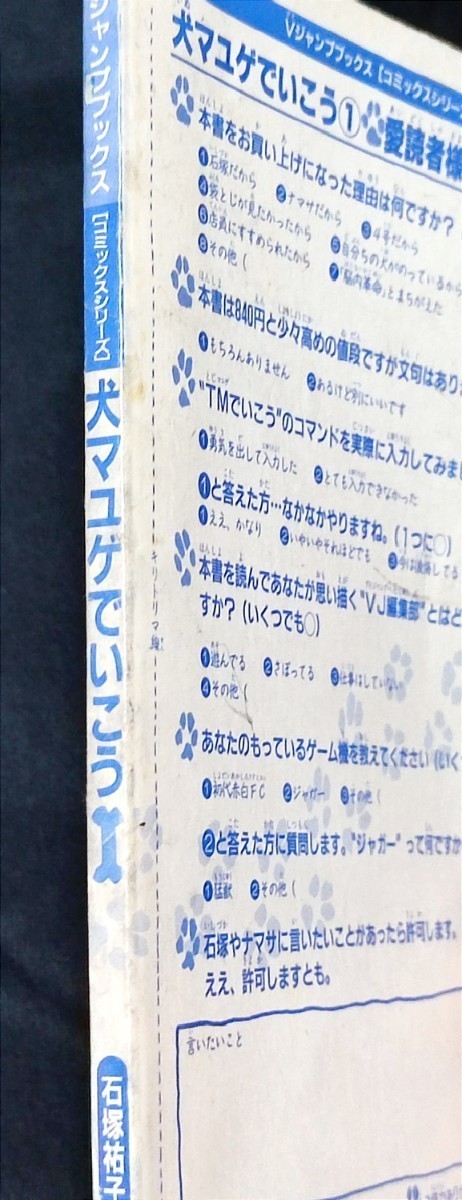 ジャンプブックス[コミックスシリーズ]
犬マユゲでいこう
石塚祐子
キリトリマ線
Vジャンプブックス[コミックスシリーズ
犬マユゲでいこう① 愛読者様
本書をお買い上げになった理由は何ですか?
❶石塚だから ❷ナマサだから ❸4号だから
❹袋とじが見たかったから ❺自分ちの犬がのっているから
❻店員にすすめられたから ❼「脳内革命」とまちがえた
❽その他(
本書は840円と少々高めの値段ですが文句はあり
❶もちろんありません ❷あるけど別にいいです
“TMでいこう”のコマンドを実際に入力してみまし
❶勇気を出して入力した ❷とても入力できなかった
❶と答えた方…なかなかやりますね。(1つに○)
❶ええ、かなり ❷いやいやそれほどでも ❸今は後悔してる
本書を読んであなたが思い描く“VJ編集部”とはど
すか?(いくつでも○)
❶遊んでる ❷さぼってる ❸仕事はしていな
❹その他(
あなたのもっているゲーム機を教えてください(いく
❶初代赤白FC ❷ジャガー ❸その他(
❷と答えた方に質問します。“ジャガー”って何ですか
❶猛獣 ❷その他(
石塚やナマサに言いたいことがあったら許可します。
ええ、許可しますとも。
言いたいこと